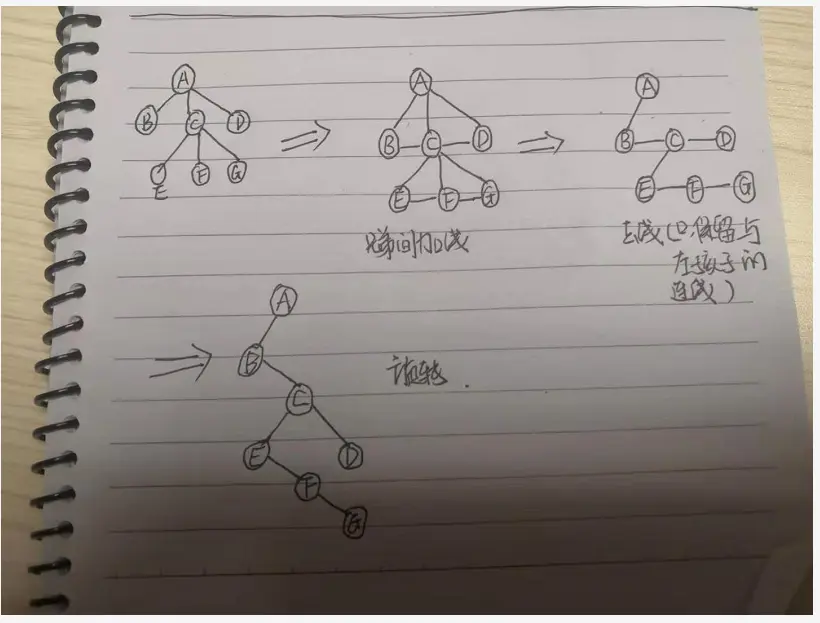 A
B C D
E F G
A
B C D
E F G
A
B C D
E F G
兄弟间加线
去线(只保留与
左孩子的
连线)
A
B
C
E D
F
G
旋转.